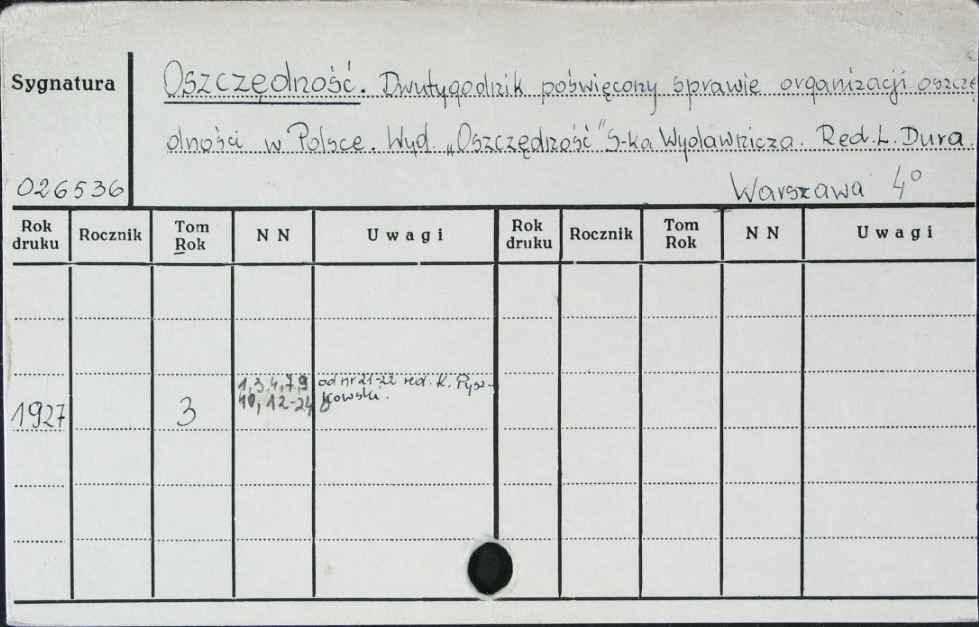 Sygnatura
Oszczędność. Dwutygodnik poświęcony sprawie organizacji oszczę
dności w Polsce. Wyd. „Oszczędność" S-ka Wydawnicza. Red. L. Dura.
026536
Warszawa 4°
Rok druku Rocznik Tom Rok N N Uwagi Rok druku Rocznik Tom Rok N N Uwagi
1,3,4,7,9 od nr 21-22 red. K. Pysz-
1927 3 10, 12-24 kowski.